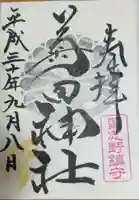 奉拝
菊田神社
平成三十年九月八日